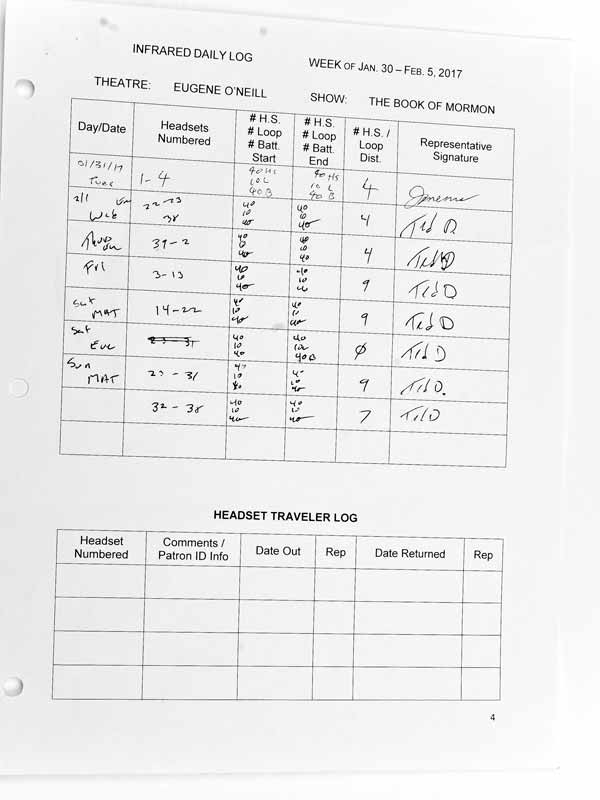 INFRARED DAILY LOG WEEK OF JAN. 30 – FEB. 5, 2017
THEATRE: EUGENE O'NEILL SHOW: THE BOOK OF MORMON
Day/Date Headsets Numbered # H.S. # Loop # Batt. Start # H.S. # Loop # Batt. End # H.S. / Loop Dist. Representative Signature
01/31/17 Tues 1-4 40 HS 10 L 40 B 40 HS 10 L 40 B 4
2/1 Wed 38 40 10 40 40 10 40 4 Ted D
39-2 40 40 40 10 40 4 Ted D
Fri 3-13 40 10 40 10 9 Ted D
Sat MAT 14-22 40 10 40 40 10 40 9 Ted D
Sat Eve 23-31 40 10 40 40 10L 40B Ø Ted D
Sun MAT 23-31 10 40 10 40 9 Ted D.
32-38 40 10 40 40 10 40 7 Ted D
HEADSET TRAVELER LOG
Headset Numbered Comments / Patron ID Info Date Out Rep Date Returned Rep
4